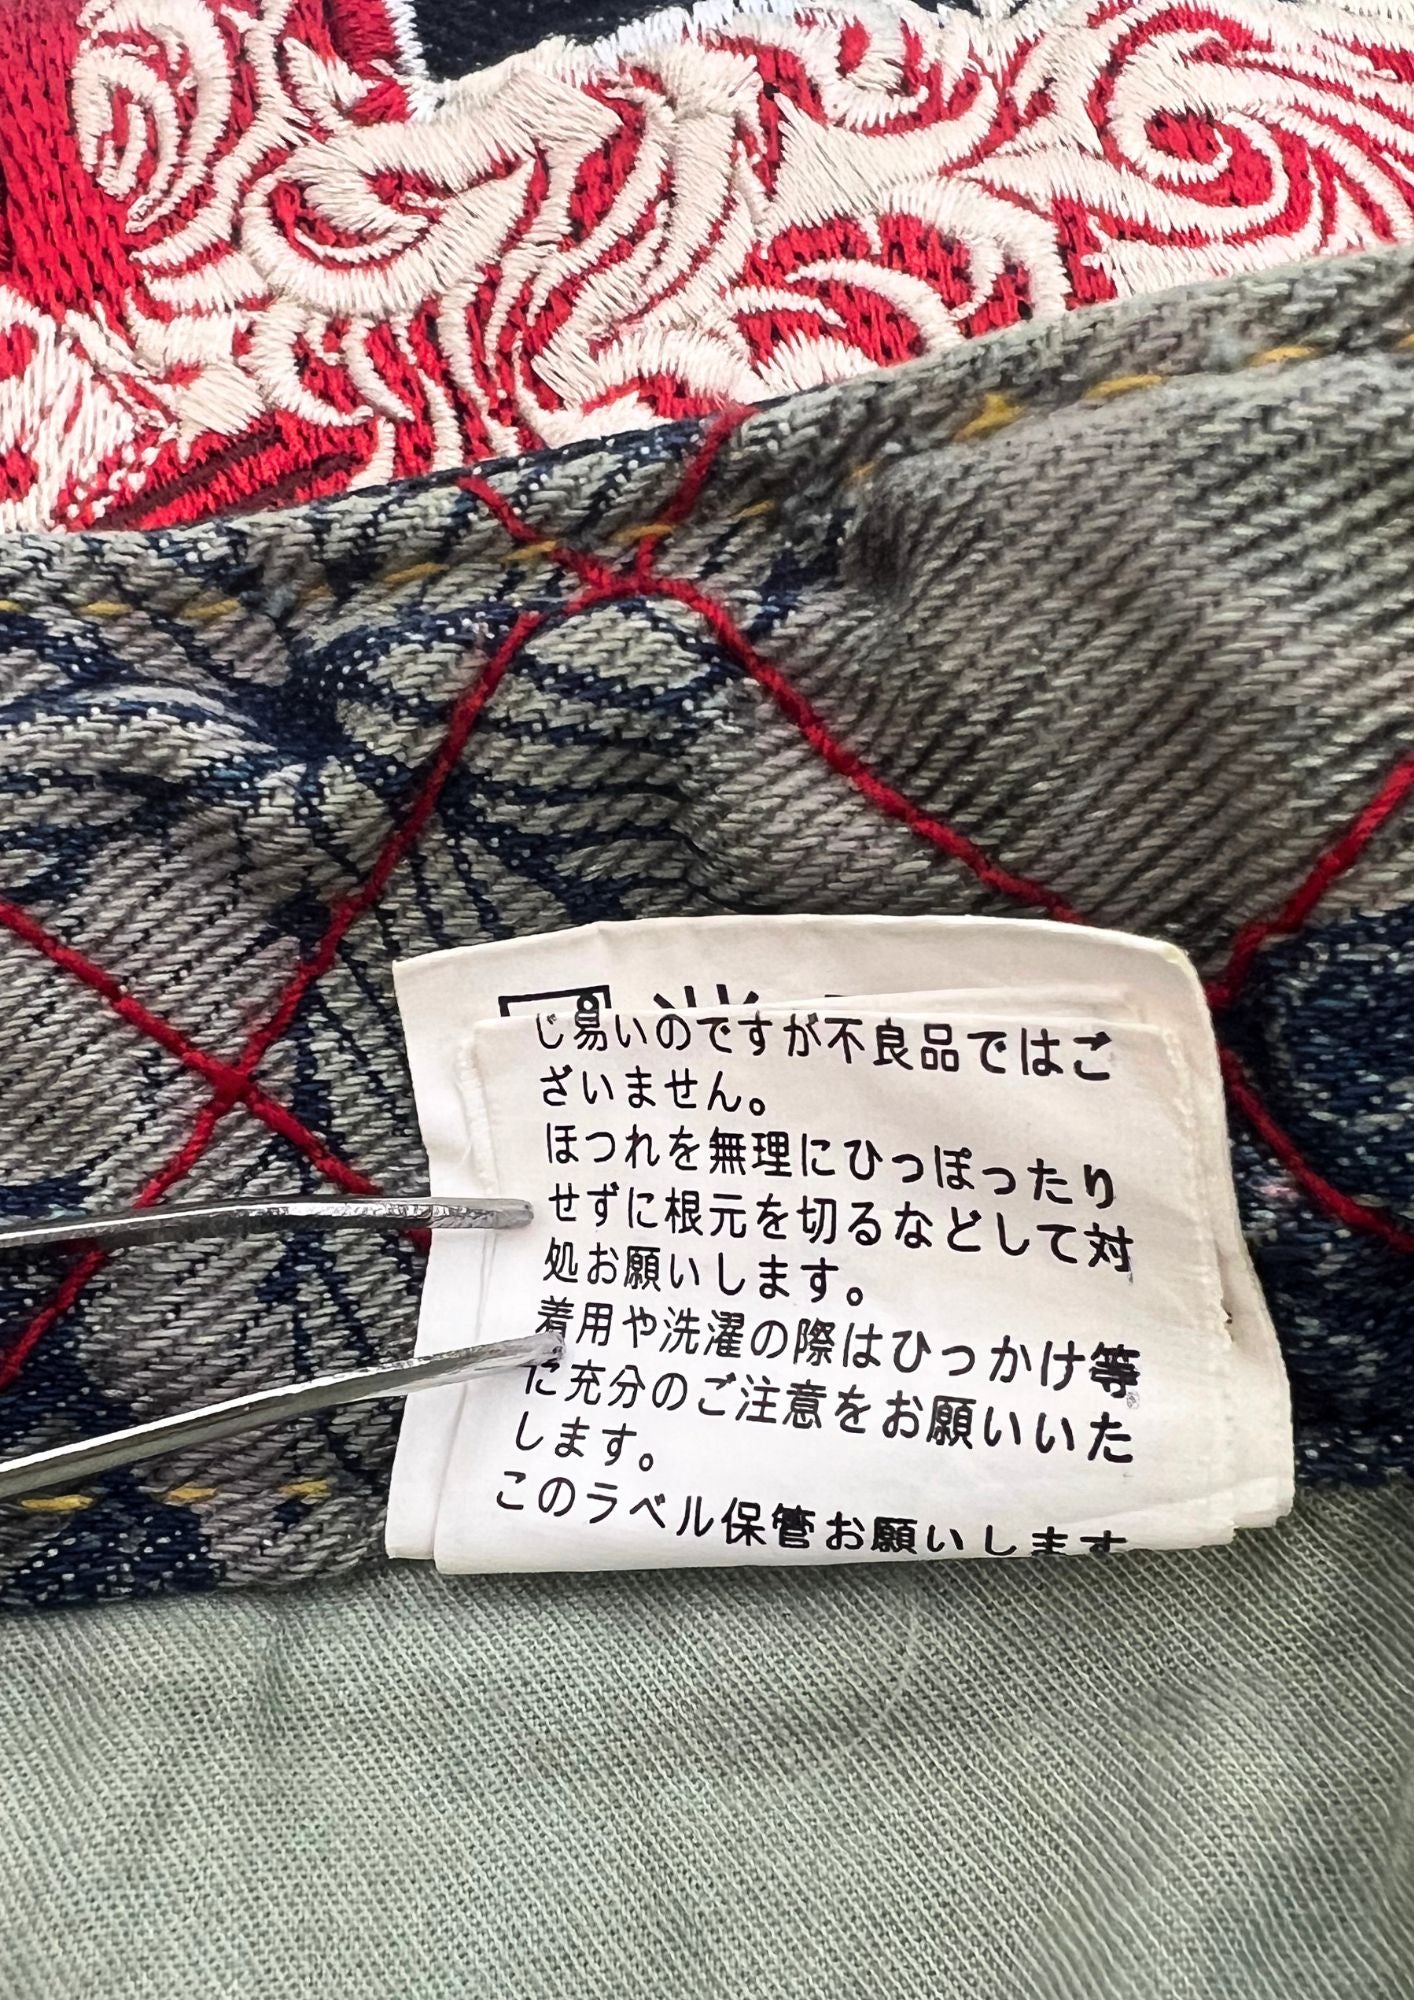 じ易いのですが不良品ではご
ざいません。
ほつれを無理にひっぽったり
せずに根元を切るなどして対
処お願いします。
着用や洗濯の際はひっかけ等
に充分のご注意をお願いいた
します。
このラベル保管お願いします